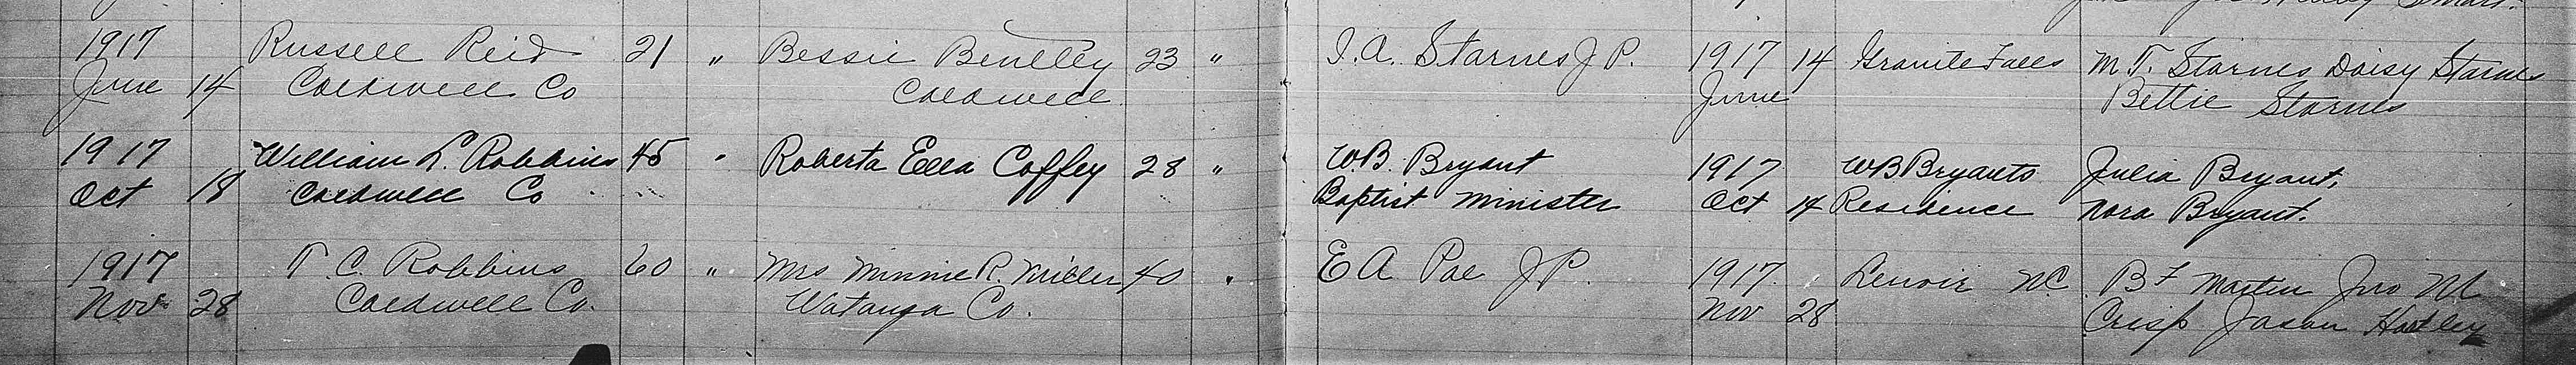 1917 Russell Reid 21 " Bessie Bentley 23 " I. A. Starnes J P. 1917 14 Granite Falls M. T. Starnes Daisy Starnes
June 14 Caldwell Co Caldwell June Bettie Starnes
1917 William L. Robbins 45 " Roberta Ella Coffey 28 " W. B. Bryant 1917 W B Bryants Julia Bryant,
Oct 18 Caldwell Co Baptist Minister Oct 14 Residence Nora Bryant.
1917 T. C. Robbins 60 " Mrs Minnie R. Miller 40 " E A Poe J P. 1917 Lenoir NC B F Martin Jno M
Nov 28 Caldwell Co. Watauga Co. Nov 28 Crisp Jason Hartley